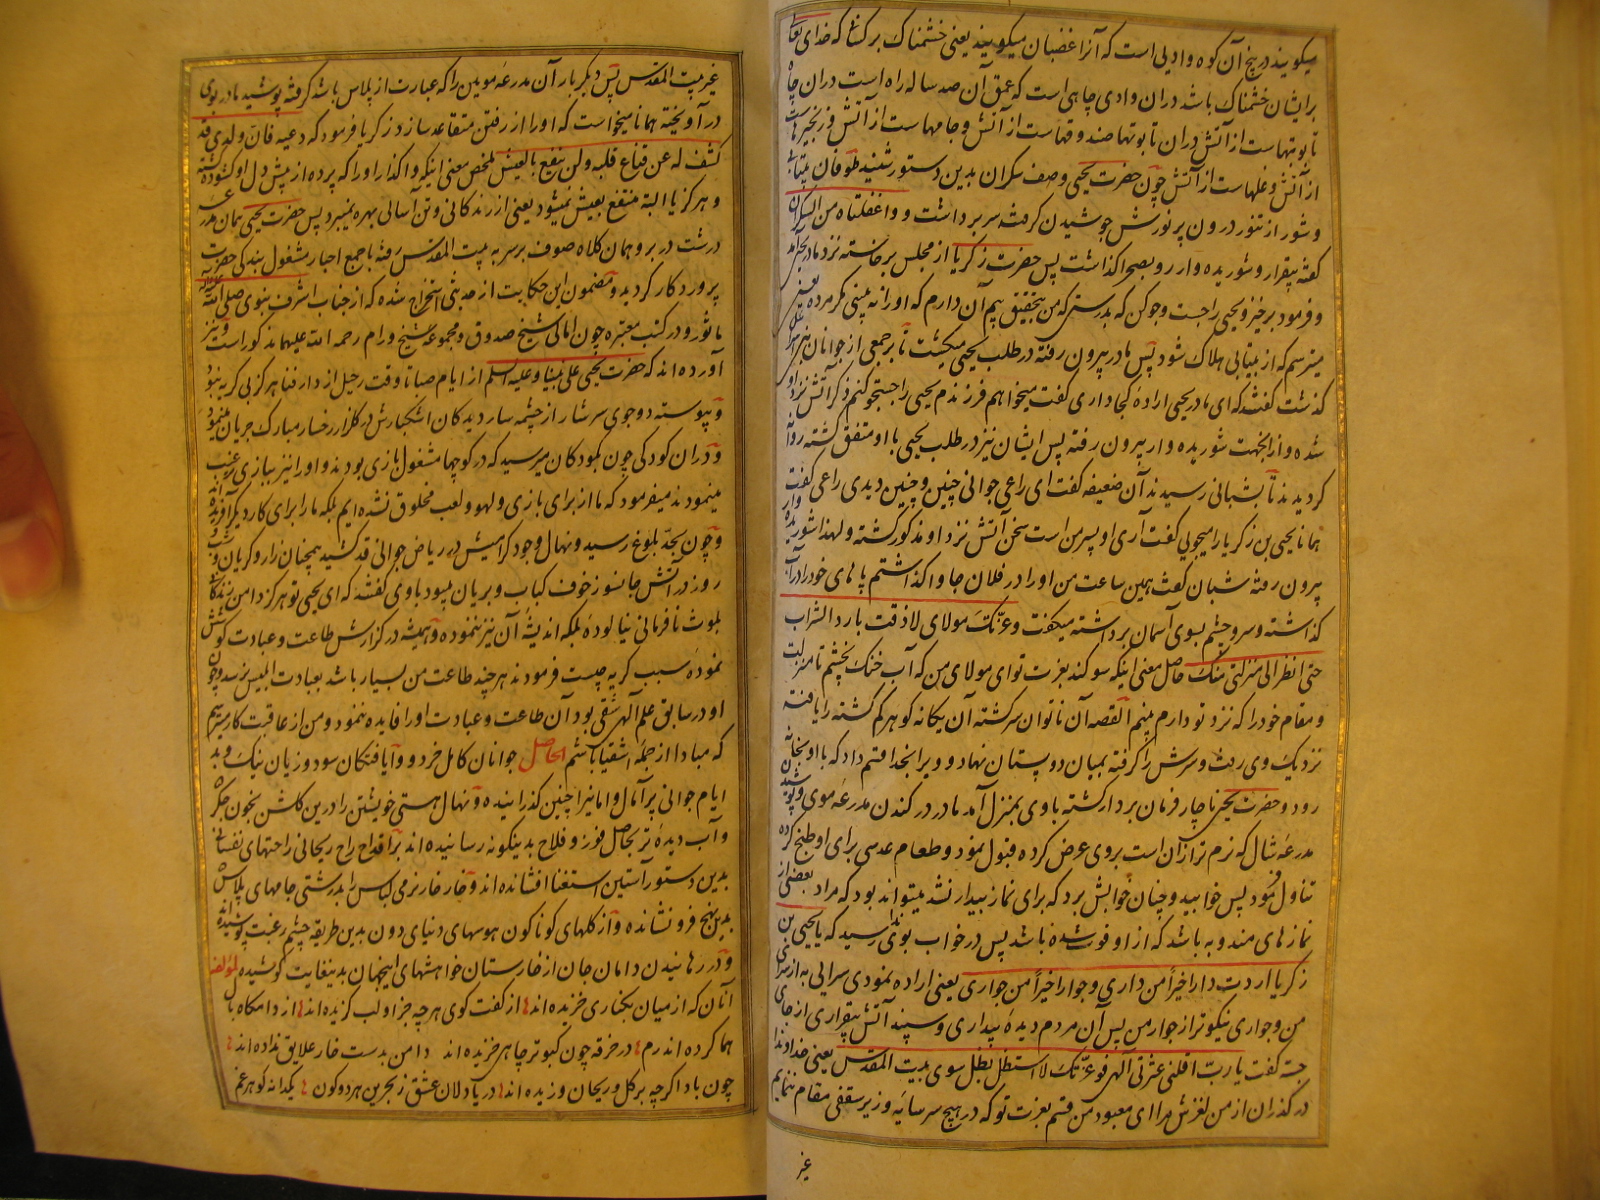 میکویند در بیخ آن کوه وادیی است که آنرا غضبان میکویند یعنی خشمناک بر کسانی که خدای تعالی
بر ایشان خشمناک باشد در ان وادی چاهی است که عمق آن صد ساله راه است در ان چاه
تابوتهاست از آتش در ان تابوتها صندوقهاست از آتش و جامهاست از آتش و زنجیرهاست
از آتش و غلهاست از آتش چون حضرت یحیی وصف سکران بدین دستور شنید طوفان بیتابی
و شور از تنور درون پر نورش جوشیدن کرفت سر برداشت و واغفلتاه من السکران
کفته بیقرار و شوریده وار رو بصحرا کذاشت پس حضرت زکریا از مجلس برخاسته نزد مادر یحیی آمد
و فرمود برخیز و یحیی را جست و جو کن که بدرستی که من بتحقیق بیم آن دارم که او را نه بینی مکر مرده یعنی
میترسم که از بیتابی هلاک شود پس مادر بیرون رفته در طلب یحیی میکشت تا بر جمعی از جوانان بنی اسرائیل
کذشت کفتند که ای مادر یحیی اراده کجا داری کفت میخواهم فرزندم یحیی را جستجو کنم ذکر آتش نزد او
شده و از اینجهت شوریده وار بیرون رفته پس ایشان نیز در طلب یحیی با او متفق کشته روانه
کردیدند تا بشبانی رسیدند آن ضعیفه کفت ای راعی جوانی چنین و چنین دیدی راعی کفت
همانا یحیی بن زکریا را میجویی کفت آری او پسر من است سخن آتش نزد او مذکور کشته و لهذا شوریده وار
بیرون رفته شبان کفت همین ساعت من او را در فلان جا واکذاشتم پا های خود را در آب
کذاشته و سر و چشم بسوی آسمان برداشته میکفت و عزتک مولای لا ذقت بارد الشراب
حتی انظر الی منزلتی منک حاصل معنی اینکه سوکند بعزت تو ای مولای من که آب خنک نچشم تا منزلت
و مقام خود را که نزد تو دارم بینم القصه آن ناتوان سرکشته آن یکانه کوهر کم کشته را یافته
نزدیک وی رفت و سرش را کرفته بمیان دو پستان نهاد و ویرا بخدا قسم داد که با او بخانه
رود و حضرت یحیی ناچار فرمان بردار کشته با وی بمنزل آمد مادر در کندن مدرعه موی و پوشیدن
مدرعه شال که نرم تر از ان است بروی عرض کرده قبول نمود و طعام عدسی برای او طبخ کرده
تناول فرمود پس خوابید و چنان خوابش برد که برای نماز بیدار نشد میتواند بود که مراد بعضی از
نماز های مندوبه باشد که از او فوت شده باشد پس در خواب بوی ندا رسید که یا یحیی بن
زکریا اردت دارا خیرا من داری و جوارا خیرا من جواری یعنی اراده نمودی سرایی به از سرای
من و جواری نیکوتر از جوار من پس آن مردم دیده بیداری و سپند آتش بیقراری از جای
جسته کفت یا رب اقلنی عثرتی آلهی فوعزتک لا استظل بظل سوی بیت المقدس یعنی خداوندا
در کذر ان از من لغزش مرا ای معبود من قسم بعزت تو که در هیچ سر سایه و زیر سقفی مقام ننمایم
غیر
غیر بیت المقدس پس دیکر بار آن مدرعه مویین را که عبارت از پلاس باشد کرفته پوشید مادر بوی
در آویخته همانا میخواست که او را از رفتن متقاعد سازد زکریا فرمود که دعیه فان ولدی قد
کشف له عن قناع قلبه و لن ینتفع بالعیش ملخص معنی اینکه واکذار او را که پرده از پیش دل او کشوده شده
و هرکز یا البته منتفع بعیش نمیشود یعنی از زندکانی و تن آسانی بهره نمیبرد پس حضرت یحیی همان مدرعه
درشت در بر و همان کلاه صوف بر سر به بیت المقدس رفته با جمع احبار مشغول بندکی حضرت
پروردکار کردید و مضمون این حکایت از حدیثی استخراج شده که از جناب اشرف نبوی صلی الله علیه و آله
ماثور و در کتب معتبره چون امالی شیخ صدوق و مجموعه شیخ ورام رحمة الله علیهما مذکور است و نیز
آورده اند که حضرت یحیی علی نبینا و علیه السلم از ایام صبا تا وقت رحیل از دار فنا هرکز بی کریه نبود
و پیوسته دو جوی سرشار از چشمه سار دیدکان اشکبارش در کلزار رخسار مبارک جریان مینمود
و در ان کودکی چون بکودکان میرسید که در کوچها مشغول بازی بودند و او را نیز ببازی رغبت
مینمودند میفرمود که ما از برای بازی و لهو و لعب مخلوق نشده ایم بلکه ما را برای کار دیکر آفریده اند
و چون بحد بلوغ رسید و نهال وجود کرامیش در ریاض جوانی قد کشید همچنان زار و کریان و شب و
روز در آتش جانسوز خوف کباب و بریان میبود با وی کفتند که ای یحیی تو هرکز دامن زندکانی
بلوث نافرمانی نیالوده بلکه اندیشه آن نیز ننموده و همیشه در کزارش طاعت و عبادت کوشش
نموده سبب کریه چیست فرمودند هر چند طاعت من بسیار باشد بعبادت ابلیس نرسد و چون
او در سابق علم آلهی شقی بود آن طاعت و عبادت او را فایده ننمود و من از عاقبت کار میترسم
که مبادا از جمله اشقیا باشم الحاصل جوانان کامل خرد و دانا یافتکان سود و زیان نیک و بد
ایام جوانی پر آمال و امانی را چنین کذرانیده و نهال هستی خویشتن را درین کلشن بخون جکر
و آب دیده تر بحاصل فوز و فلاح بدینکونه رسانیده اند بر اقداح راح ریحانی راحتهای نفسانی
بدین دستور آستین استغنا افشانده اند و خار خار نرمی لباس را بدرشتی جامهای پلاس
بدین نهج فرو نشانده و از کلهای کوناکون هوسهای دنیای دون بدین طریقه چشم رغبت پوشیده اند
و در رهانیدن دامان جان از خارستان خواهشهای اینجهان بدینغایت کوشیده لمؤلفه
آنان که از میان بکناری خزیده اند از کفت کوی هر چه جز او لب کزیده اند از دامکاه با
هما کرده اند رم در خرقه چون کبوتر چاهی خزیده اند دامن بدست خار علایق نداده اند
چون باد اکر چه بر کل و ریحان وزیده اند دریا دلان عشق ز بحرین هر دو کون یکدانه کوهر غم